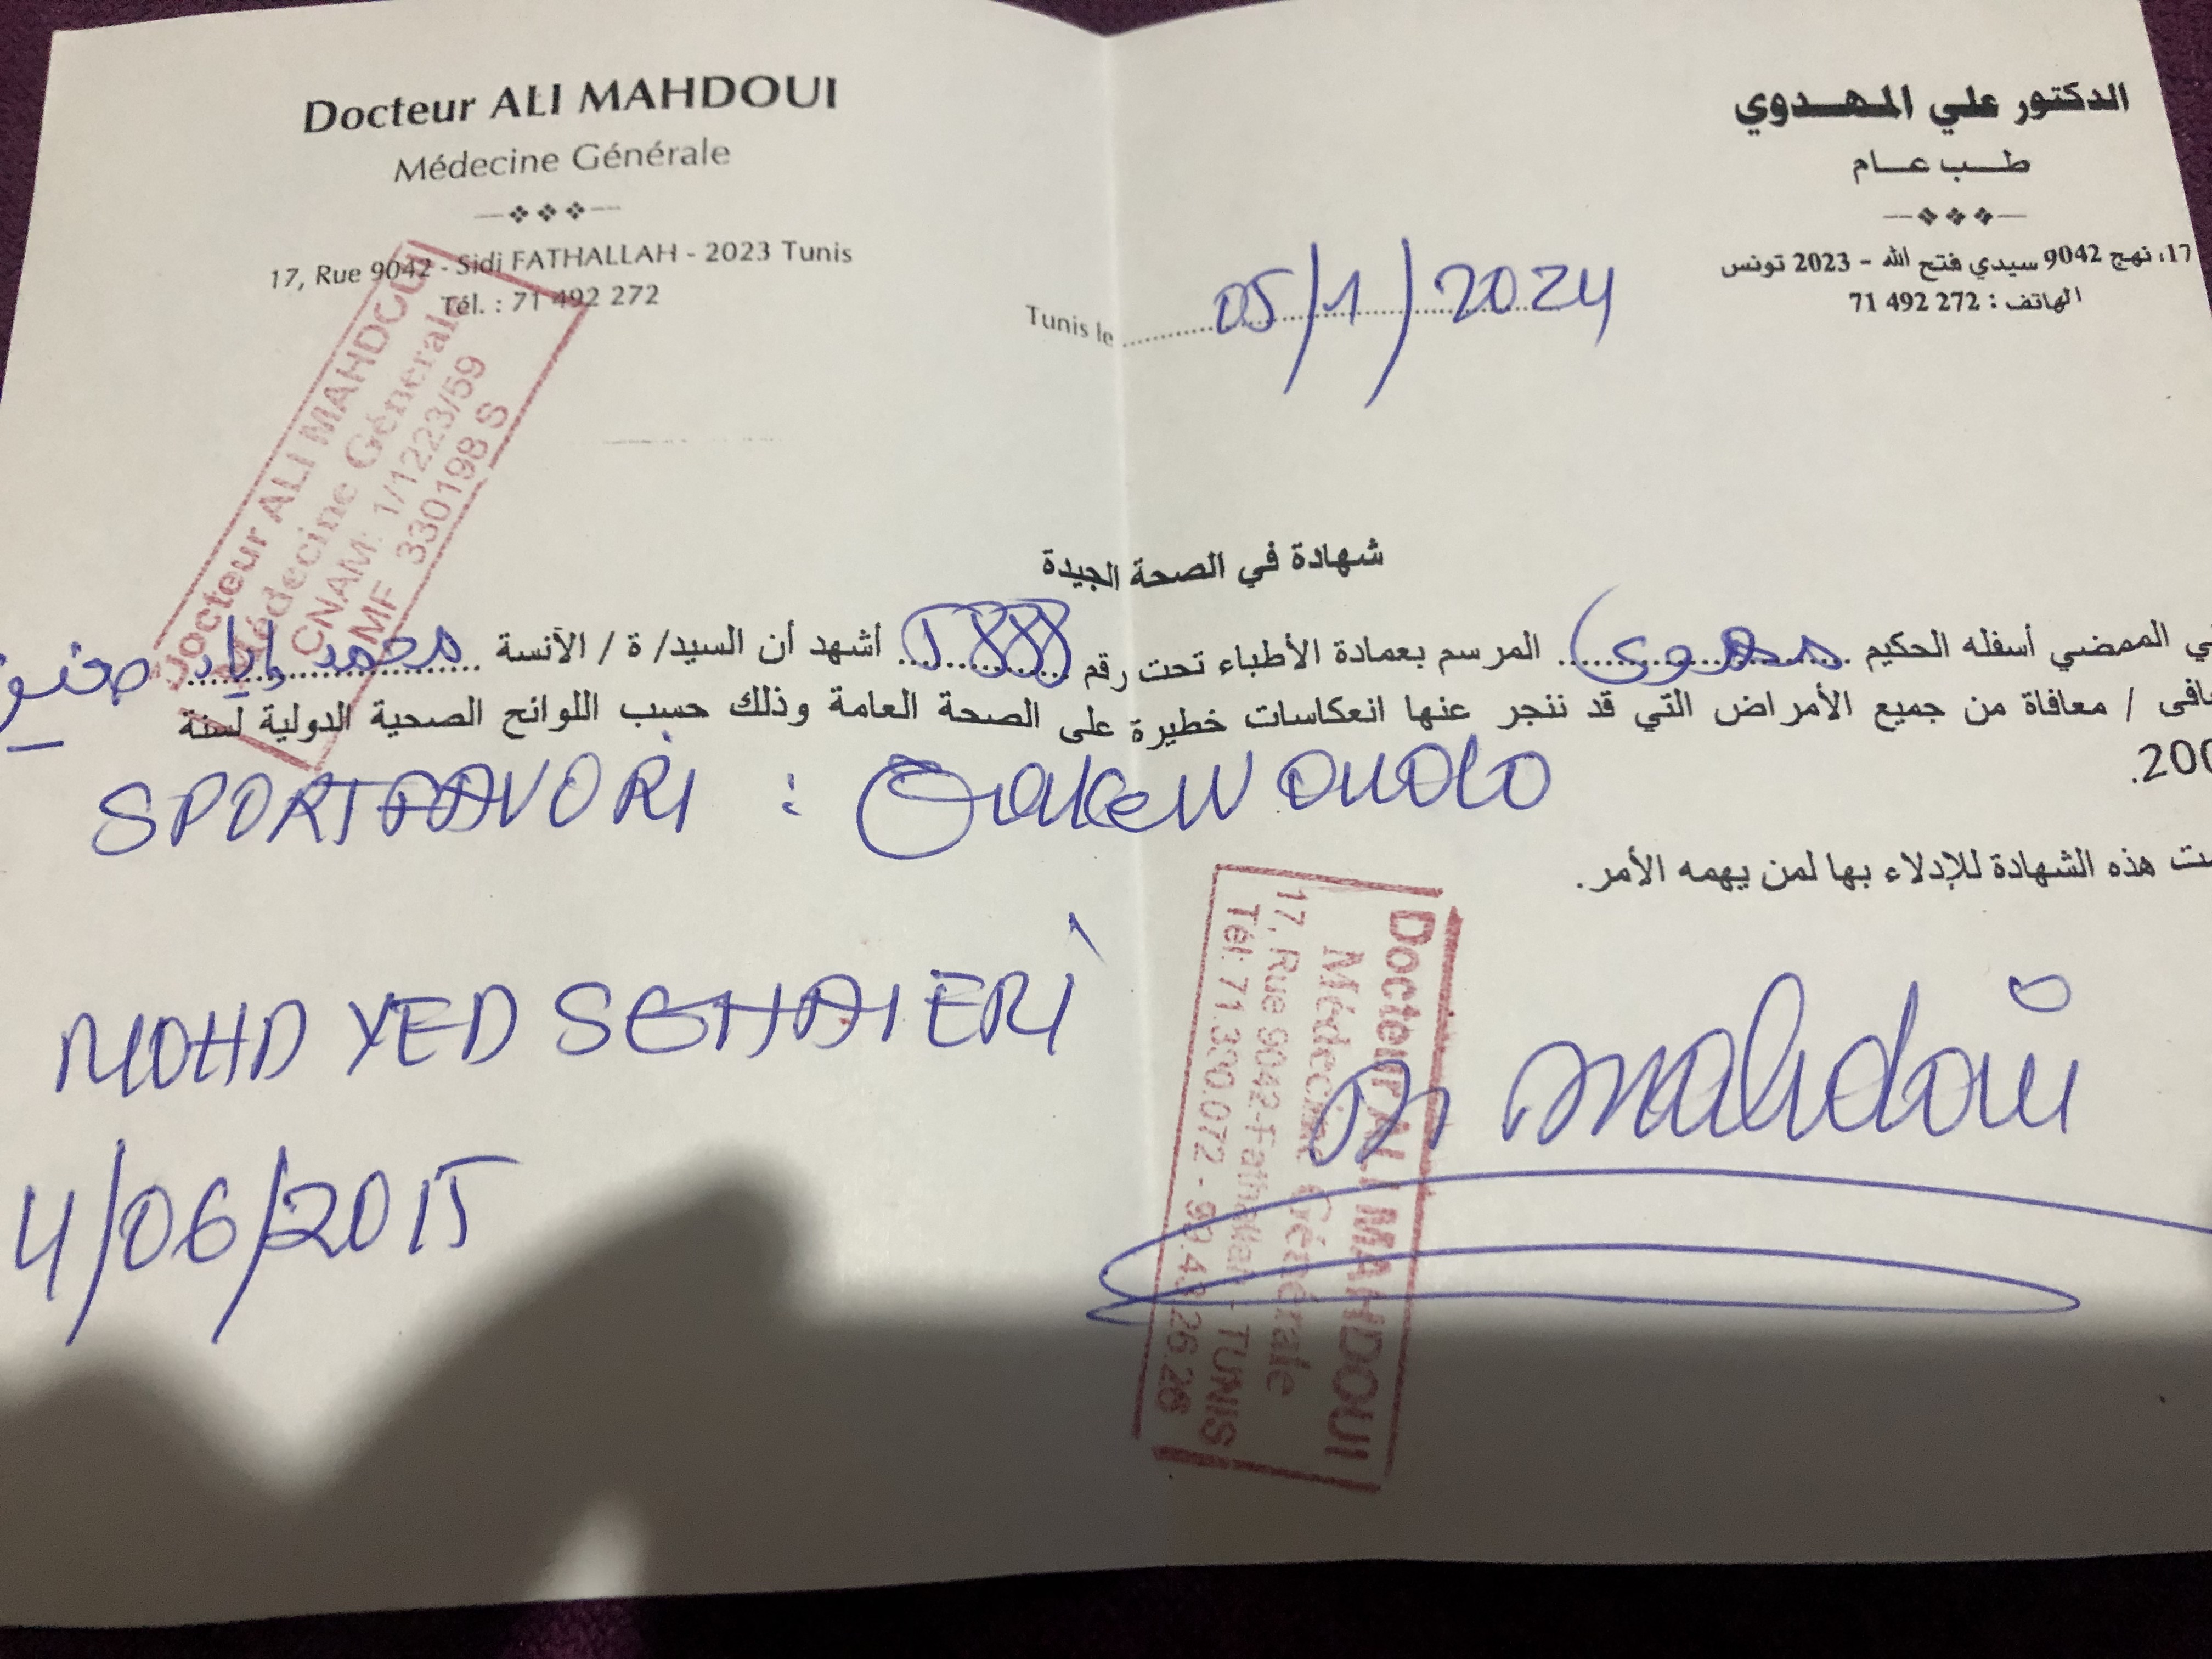 Docteur ALI MAHDOUI
Médecine Générale
17, Rue 9042 - Sidi FATHALLAH - 2023 Tunis
Tél. : 71 492 272
الدكتور علي المهدوي
طب عام
17، نهج 9042 سيدي فتح الله - 2023 تونس
الهاتف : 272 492 71
Tunis le 05/1/2024
Docteur ALI MAHDOUI
Médecine Générale
CNAM: 1/1223/59
MF 330198 S
شهادة في الصحة الجيدة
الممضي أسفله الحكيم مهدوي المرسم بعمادة الأطباء تحت رقم أشهد أن السيد/ ة / الأنسة محمد إياد
/ معافاة من جميع الأمراض التي قد ننجر عنها انعكاسات خطيرة على الصحة العامة وذلك حسب اللوائح الصحية الدولية لسنة
SPORT FAVORI :
هذه الشهادة للإدلاء بها لمن يهمه الأمر.
MOHD YED
4/06/2015
Docteur ALI MAHDOUI
Médecine Générale
17, Rue 9042-Fathallah - TUNIS
Tél: 71.390.072 -
Dr mahdoui